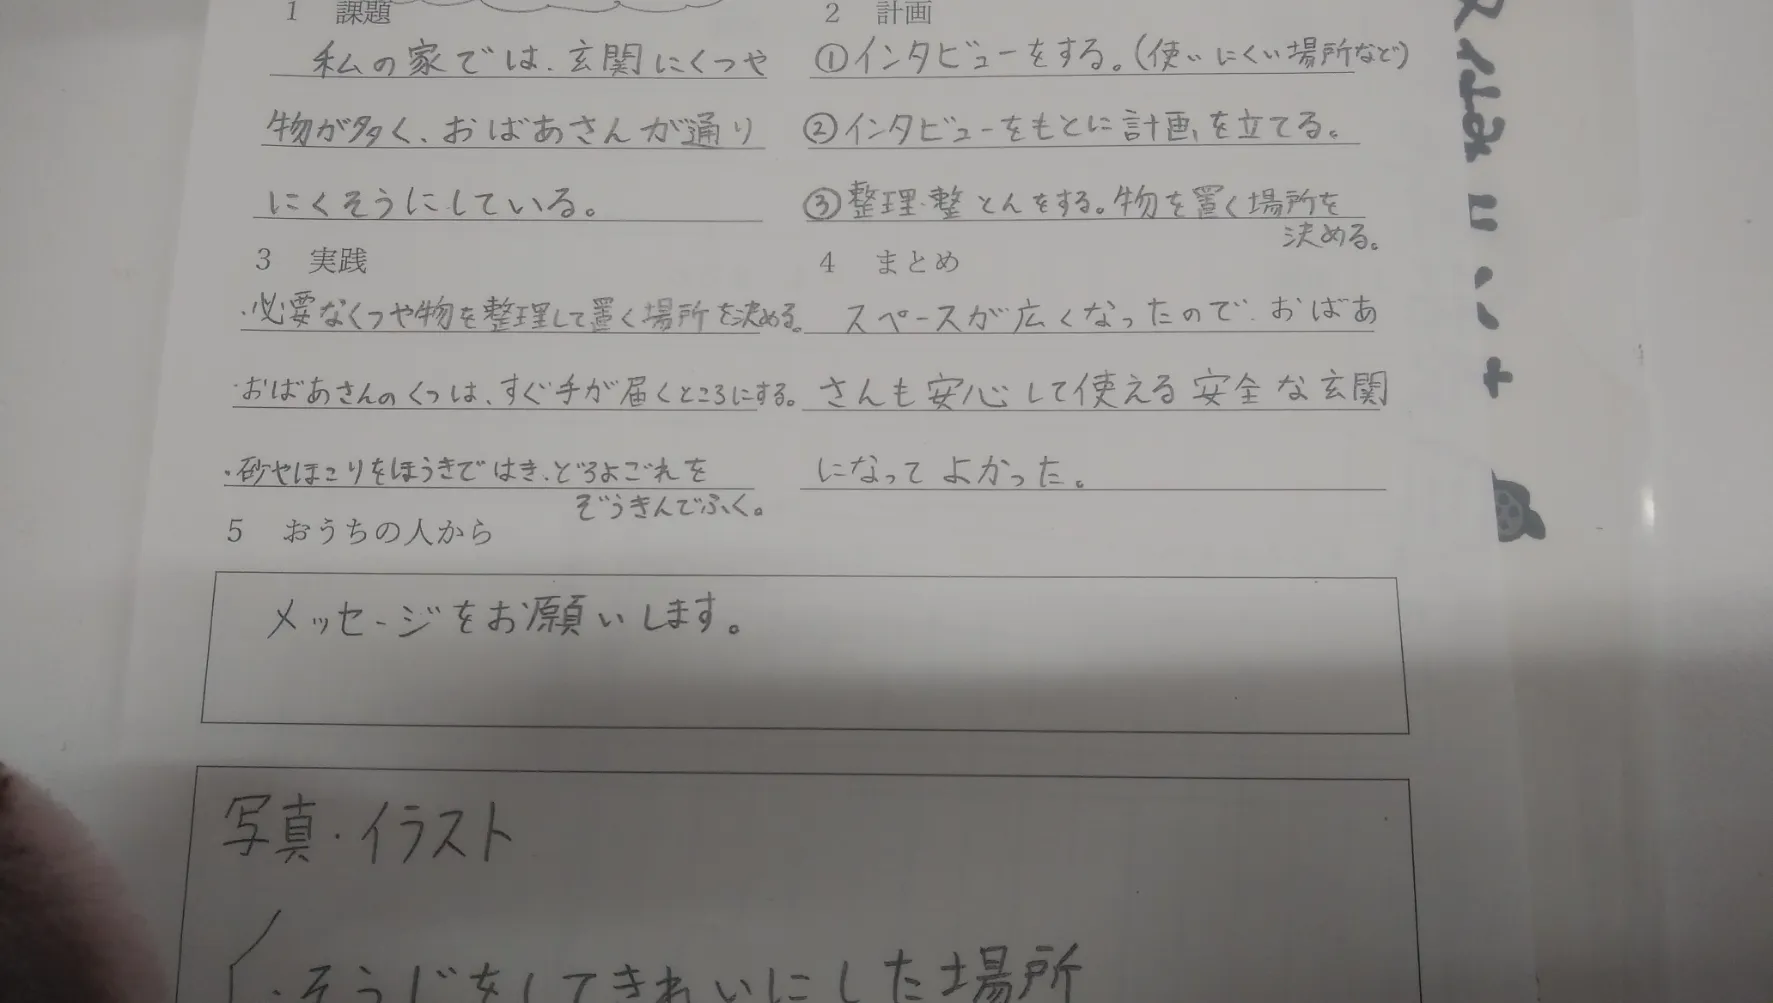 1 課題
私の家では、玄関にくつや
物が多く、おばあさんが通り
にくそうにしている。
2 計画
①インタビューをする。(使いにくい場所など)
②インタビューをもとに計画を立てる。
③整理・整とんをする。物を置く場所を
決める。
3 実践
・必要なくつや物を整理して置く場所を決める。
・おばあさんのくつは、すぐ手が届くところにする。
・砂やほこりをほうきではき、どろよごれを
ぞうきんでふく。
4 まとめ
スペースが広くなったので、おばあ
さんも安心して使える安全な玄関
になってよかった。
5 おうちの人から
メッセージをお願いします。
写真・イラスト
・そうじをしてきれいにした場所